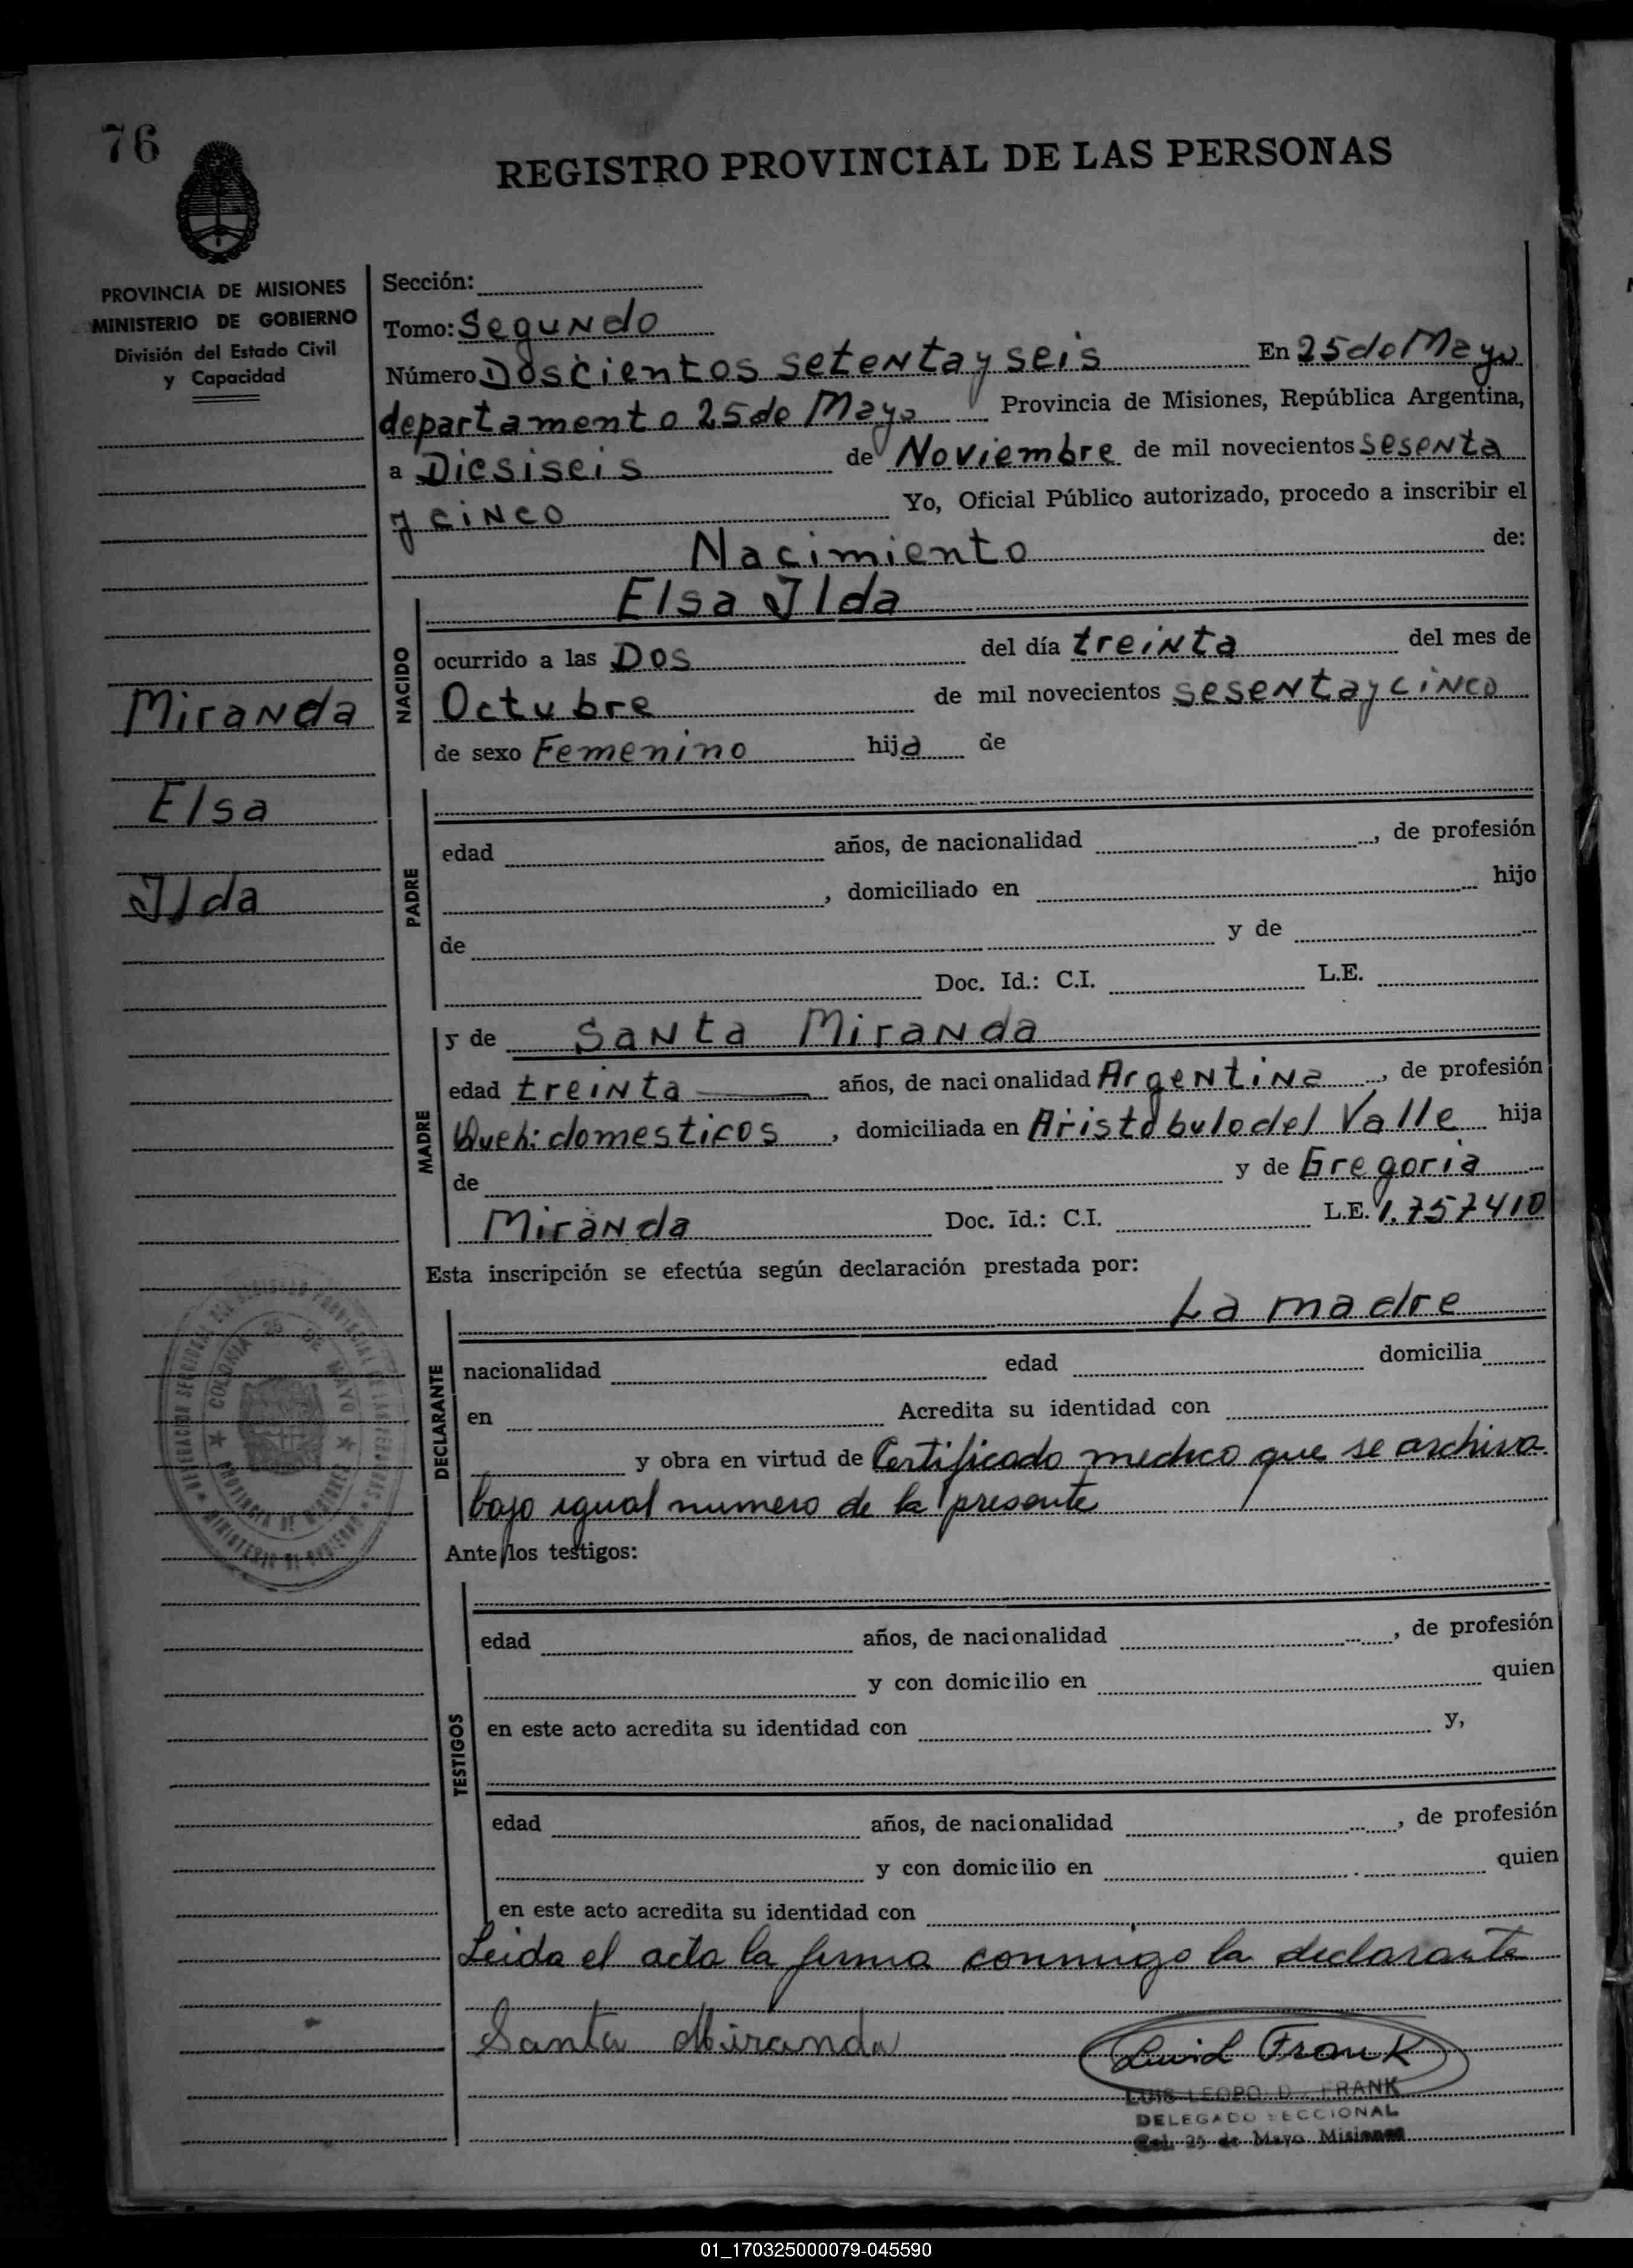 76
REGISTRO PROVINCIAL DE LAS PERSONAS
PROVINCIA DE MISIONES
MINISTERIO DE GOBIERNO
División del Estado Civil
y Capacidad
Miranda
Elsa
Ilda
Sección:
Tomo: Segundo
Número Doscientos setenta y seis En 25 de Mayo
departamento 25 de Mayo Provincia de Misiones, República Argentina,
a Diesiseis de Noviembre de mil novecientos sesenta
y cinco Yo, Oficial Público autorizado, procedo a inscribir el
Nacimiento de:
Elsa Ilda
NACIDO
ocurrido a las Dos del día treinta del mes de
Octubre de mil novecientos sesenta y cinco
de sexo Femenino hija de
PADRE
edad años, de nacionalidad , de profesión
, domiciliado en hijo
de y de
Doc. Id.: C.I. L.E.
MADRE
y de Santa Miranda
edad treinta años, de nacionalidad Argentina , de profesión
Queh: domesticos , domiciliada en Aristobulo del Valle hija
de y de Gregoria
Miranda Doc. Id.: C.I. L.E. 1.757410
Esta inscripción se efectúa según declaración prestada por:
La madre
DECLARANTE
nacionalidad edad domicilia
en Acredita su identidad con
y obra en virtud de Certificado medico que se archiva
bajo igual numero de la presente
Ante los testigos:
TESTIGOS
edad años, de nacionalidad , de profesión
y con domicilio en quien
en este acto acredita su identidad con y,
edad años, de nacionalidad , de profesión
y con domicilio en quien
en este acto acredita su identidad con
Leida el acta la firma conmigo la declarante
Santa Miranda
Frank
LUIS LEOPOLD FRANK
DELEGADO SECCIONAL
Col. 25 de Mayo Misiones
COLONIA 25 DE MAYO
PROVINCIA DE MISIONES
MINISTERIO DE GOBIERNO
01_170325000079-045590